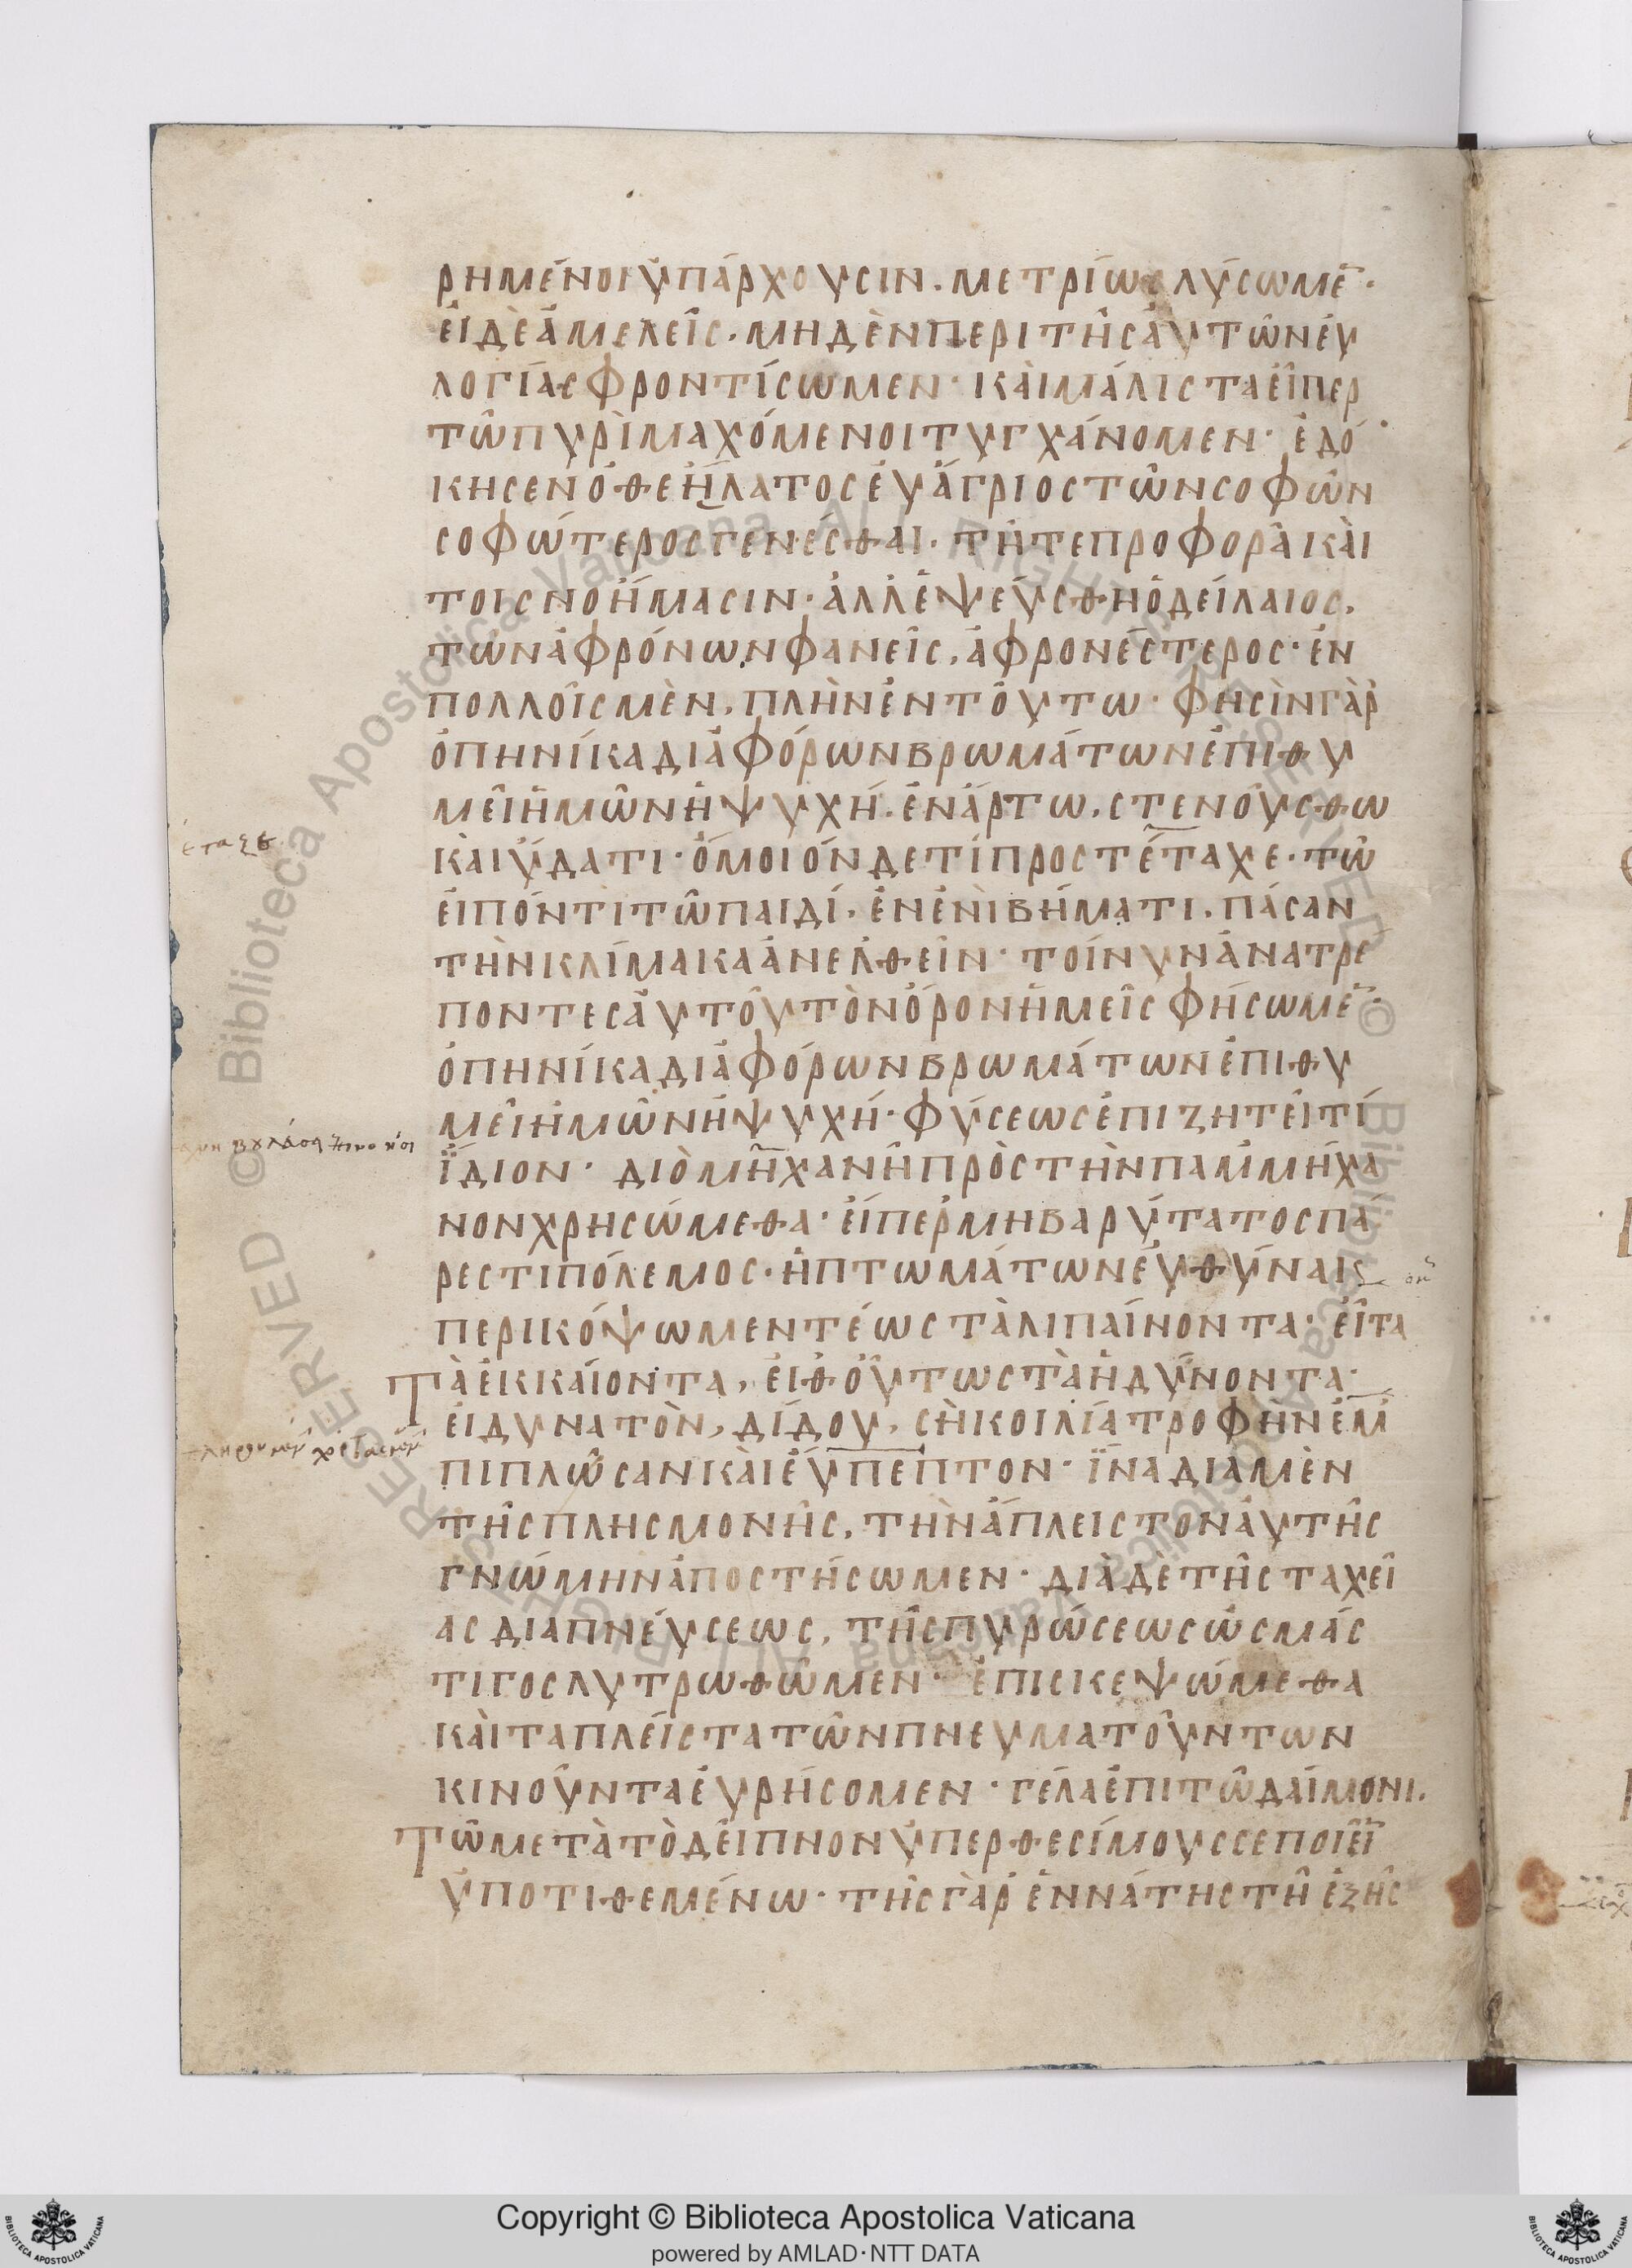 ρημένοι ὑπάρχουσιν. μετρίως λύσωμε̅·
εἰ δὲ ἀμελεῖς. μηδὲν περι τῆς ἀυτῶν ἐυ
λογίας φροντίσωμεν· κὰι μάλιστα εἴπερ
τῶ πυρὶ μαχόμενοι τυγχάνομεν· ἐδό
κησεν ὁ θεήλατος ἐυάγριος τῶν σοφῶν
σοφώτερος γενέσθαι. τῆ τε προφορᾶ κὰι
τοις νοήμασιν· ἀλλ ἐψεύσθη ὁ δείλαιος.
τῶν ἀφρόνων φανεὶς, ἀφρονέστερος· ἐν
πολλοῖς μὲν, πλὴν ἐν τούτω· φησὶν γὰρ
ὁπηνίκα διαφόρων βρωμάτων ἐπιθυ
μεῖ ἡμῶν ἡ ψυχή. ἐν ἄρτω, στενούσθω
και ὕδατι· ὅμοιόν δε τί προστέταχε. τῶ
εἰπόντι τῶ παιδί. ἐν ἑνὶ βήματι. πάσαν
τὴν κλίμακα ἀνελθεῖν· τοίνυν ἀνατρε
ποντες ἀυτοῦ τὸν ὅρον ἡμεῖς φήσωμε̅·
ὁπηνίκα διαφόρων βρωμάτων ἐπιθυ
μεῖ ἡμῶν ἡ ψυχή· φύσεως ἐπιζητεῖ τί
ἴδιον· διὸ μηχανῆ πρὸς τὴν παμμήχα
νον χρησώμεθα· εἴπερ μη βαρύτατος πά
ρεστι πόλεμος· ἢ πτωμάτων ἐυθύναις
περικόψωμεν τέως τὰ λιπαίνοντα· εἶτα
τὰ ἐκκαίοντα, εἰθ οὕτως τὰ ἡδύνοντα·
εἰ δυνατὸν, δίδου, σῆ κοιλία τροφὴν ἐμ
πιπλῶσαν κὰι ἐύπεπτον· ἵνα δια μὲν
τῆς πλησμονῆς, τὴν ἄπλειστον ἀυτῆς
γνώμην ἀποστήσωμεν· διὰ δὲ τῆς ταχεί
ας διαπνέυσεως, τῆς πυρώσεως ὡς μάσ
τιγος λυτρωθῶμεν· ἐπισκεψώμεθα
κὰι τα πλεῖστα τῶν πνευματούντων
κινοῦντα ἐυρήσομεν· γέλα ἐπι τῶ δαίμονι.
τῶ μετὰ τὸ δεῖπνον ὑπερθεσίμους σε ποιεῖ̅
ὑποτιθεμένω· τῆς γὰρ ἐννάτης τῆ ἑξῆς
Copyright © Biblioteca Apostolica Vaticana
powered by AMLAD·NTT DATA